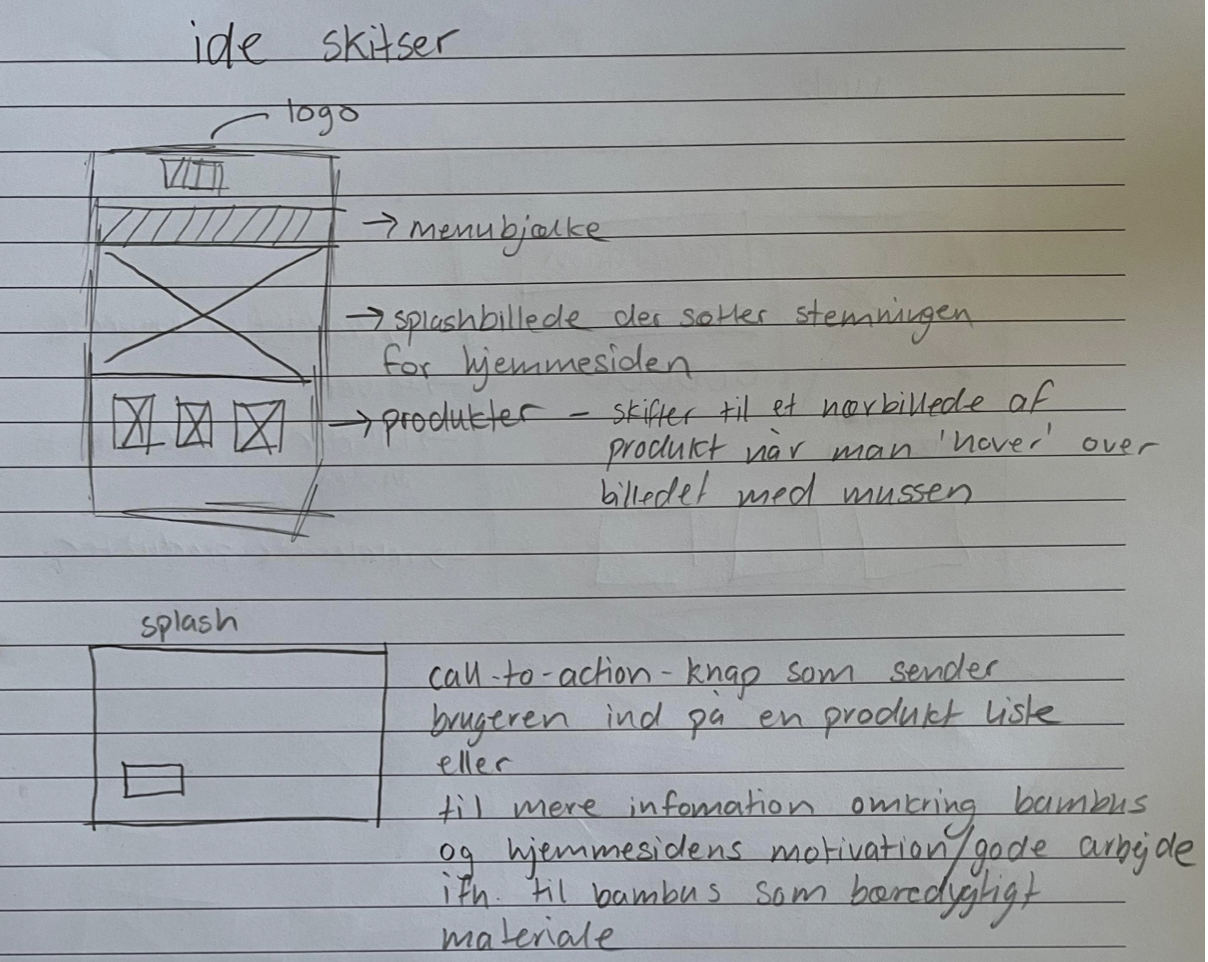 ide skitser
logo
→ menubjælke
→ splashbillede der sætter stemningen
for hjemmesiden
→ produkter - skifter til et nærbillede af
produkt når man 'hover' over
billedet med mussen
splash
call-to-action-knap som sender
brugeren ind på en produkt liste
eller
til mere infomation omkring bambus
og hjemmesidens motivation/gode arbejde
ifh. til bambus som bæredygtigt
materiale